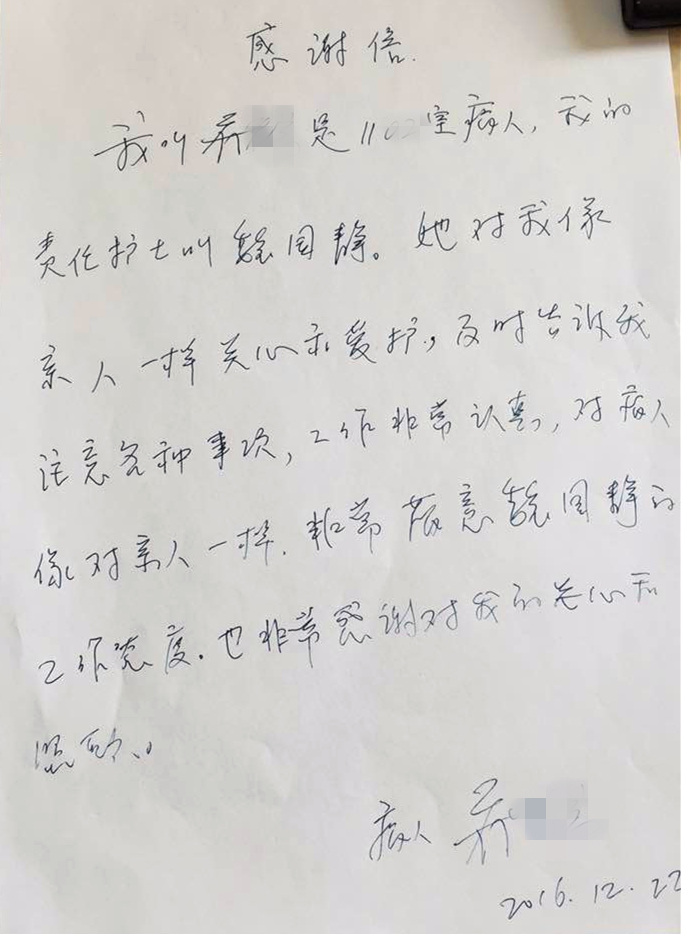 感谢信.
我叫乔 是1102室病人，我的
责任护士叫 国静。她对我像
亲人一样关心和爱护，及时告诉我
注意各种事项，工作非常认真，对病人
像对亲人一样．非常满意 国静的
工作态度．也非常感谢对我的关心和
照顾．
病人 乔
2016.12.22